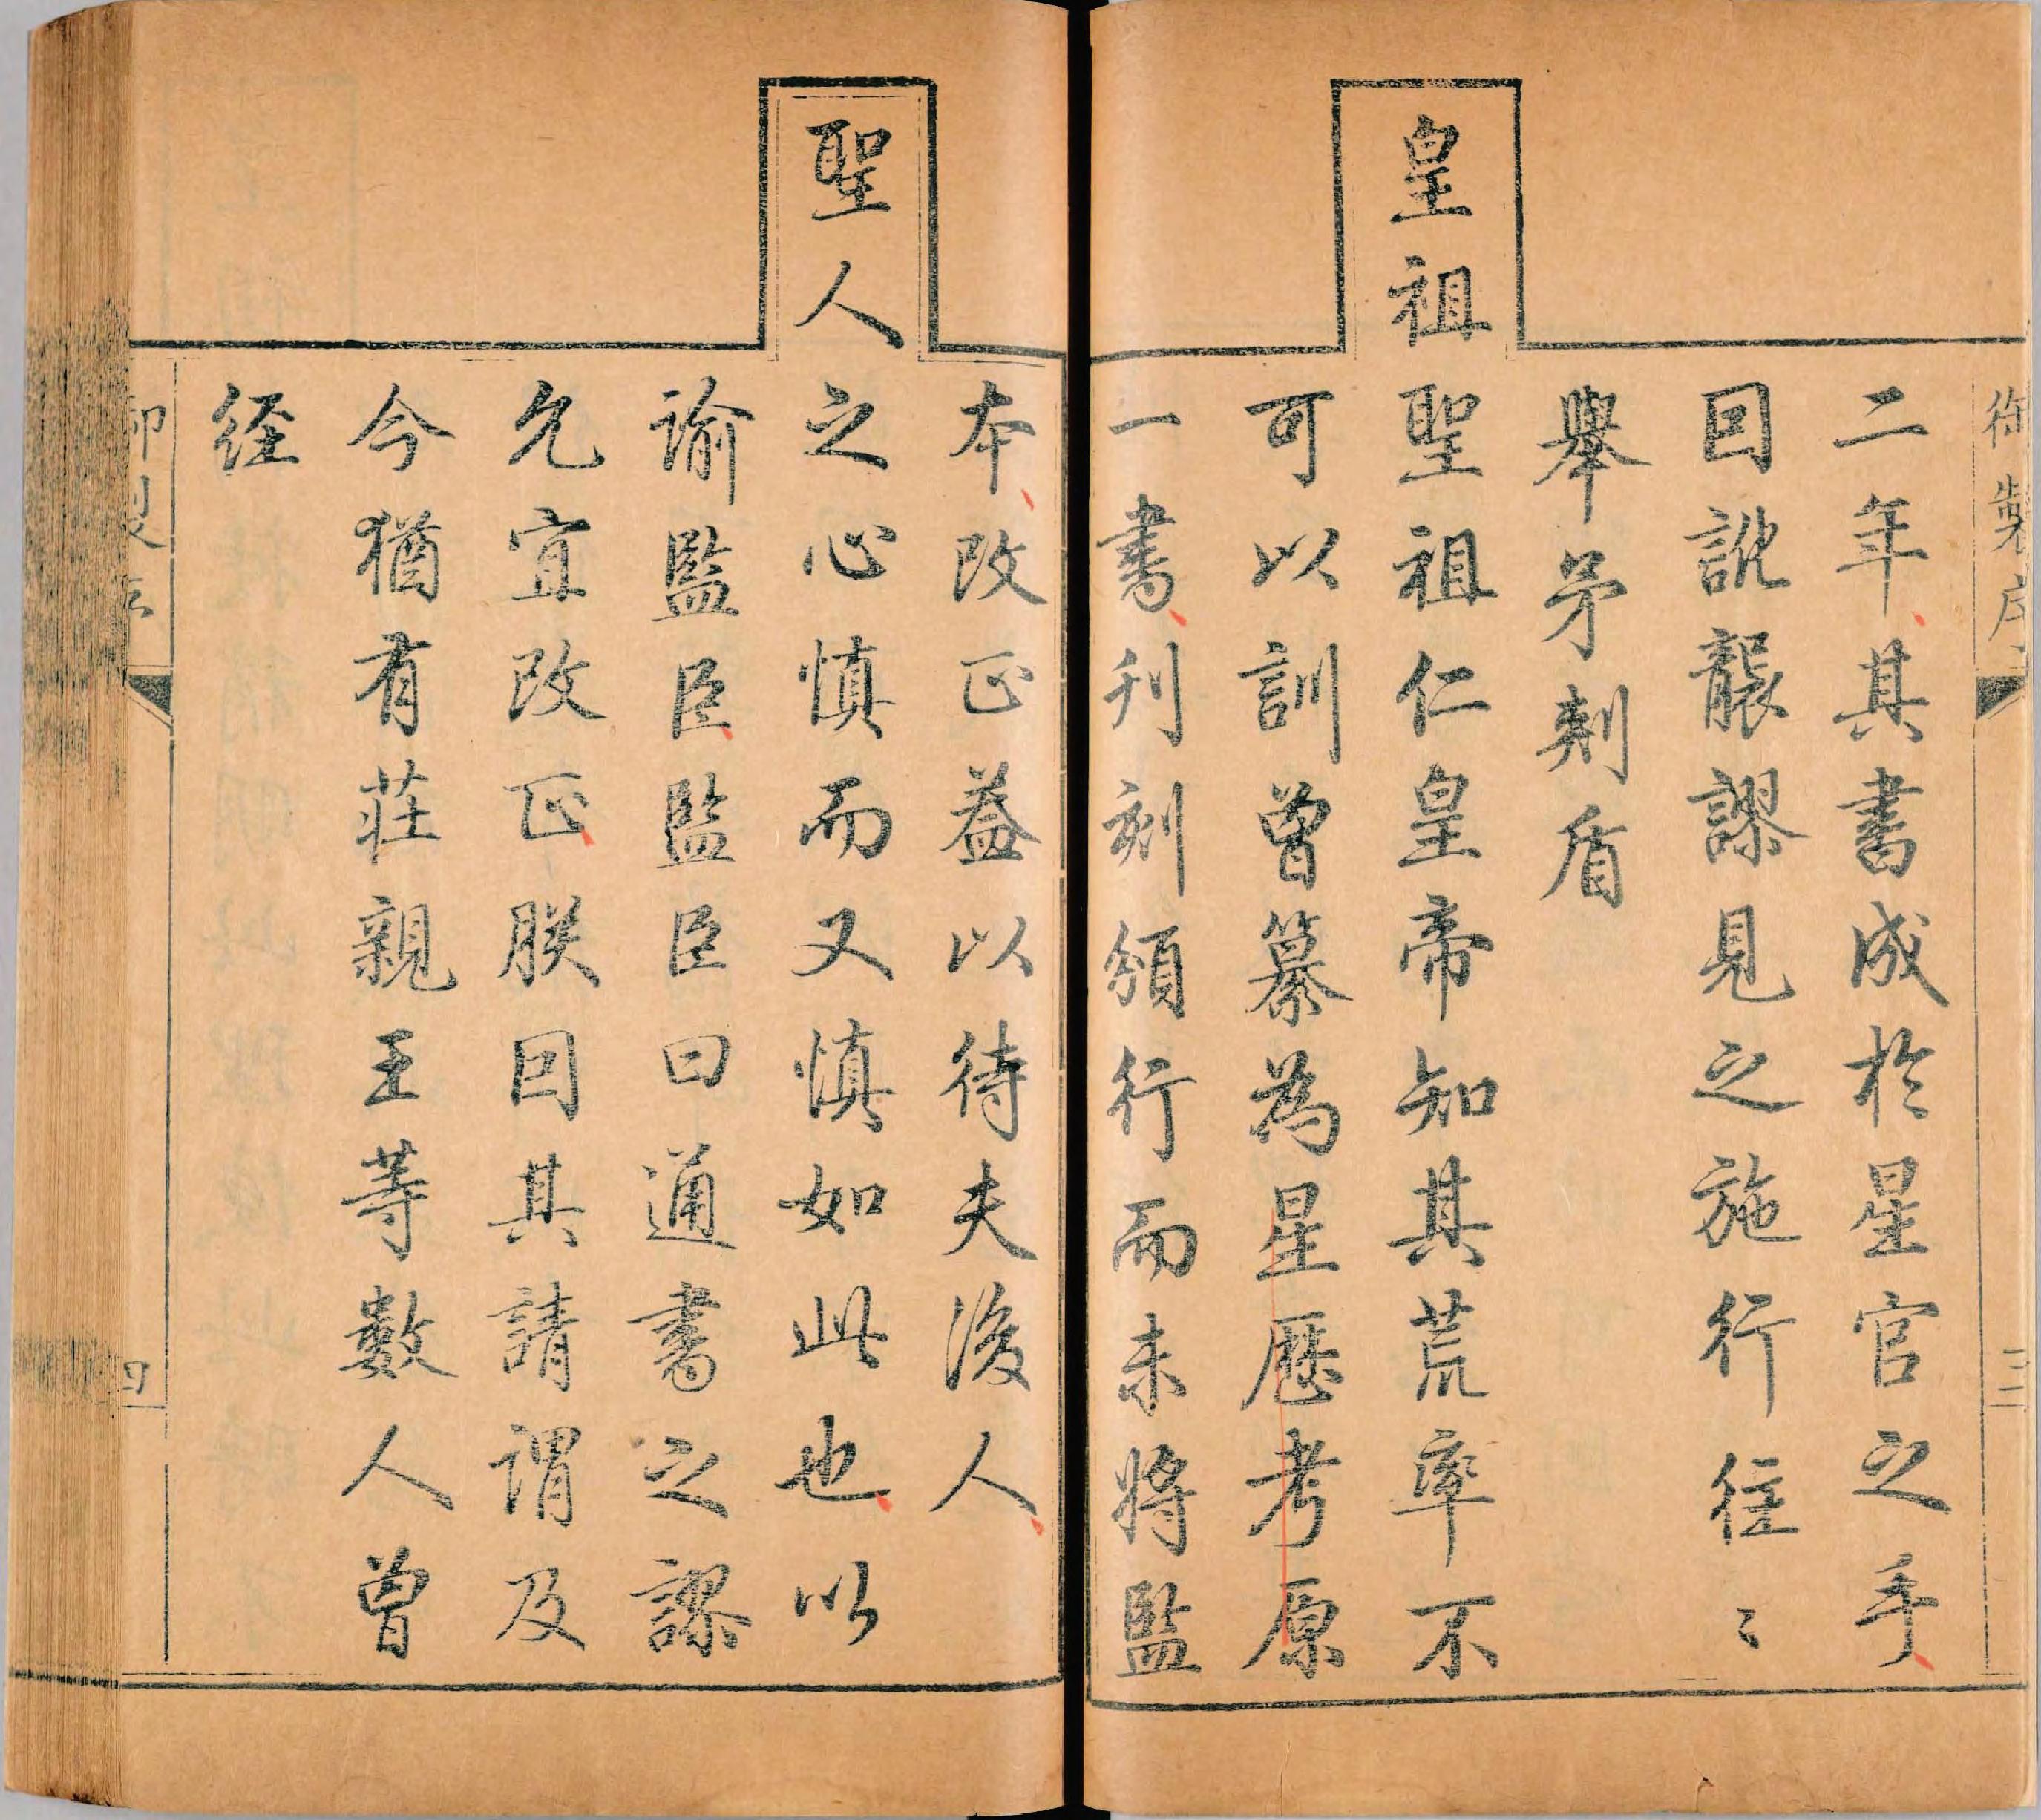 御製序
三
二年其書成於星官之手
因訛襲謬見之施行往〻
舉矛刺盾
皇祖聖祖仁皇帝知其荒率不
可以訓曾纂為星歷考原
一書刊刻頒行而未將監
本改正葢以待夫後人
聖人之心慎而又慎如此也以
諭監臣監臣曰通書之謬
允宜改正朕因其請謂及
今猶有莊親王等數人曾
経
御製序
四